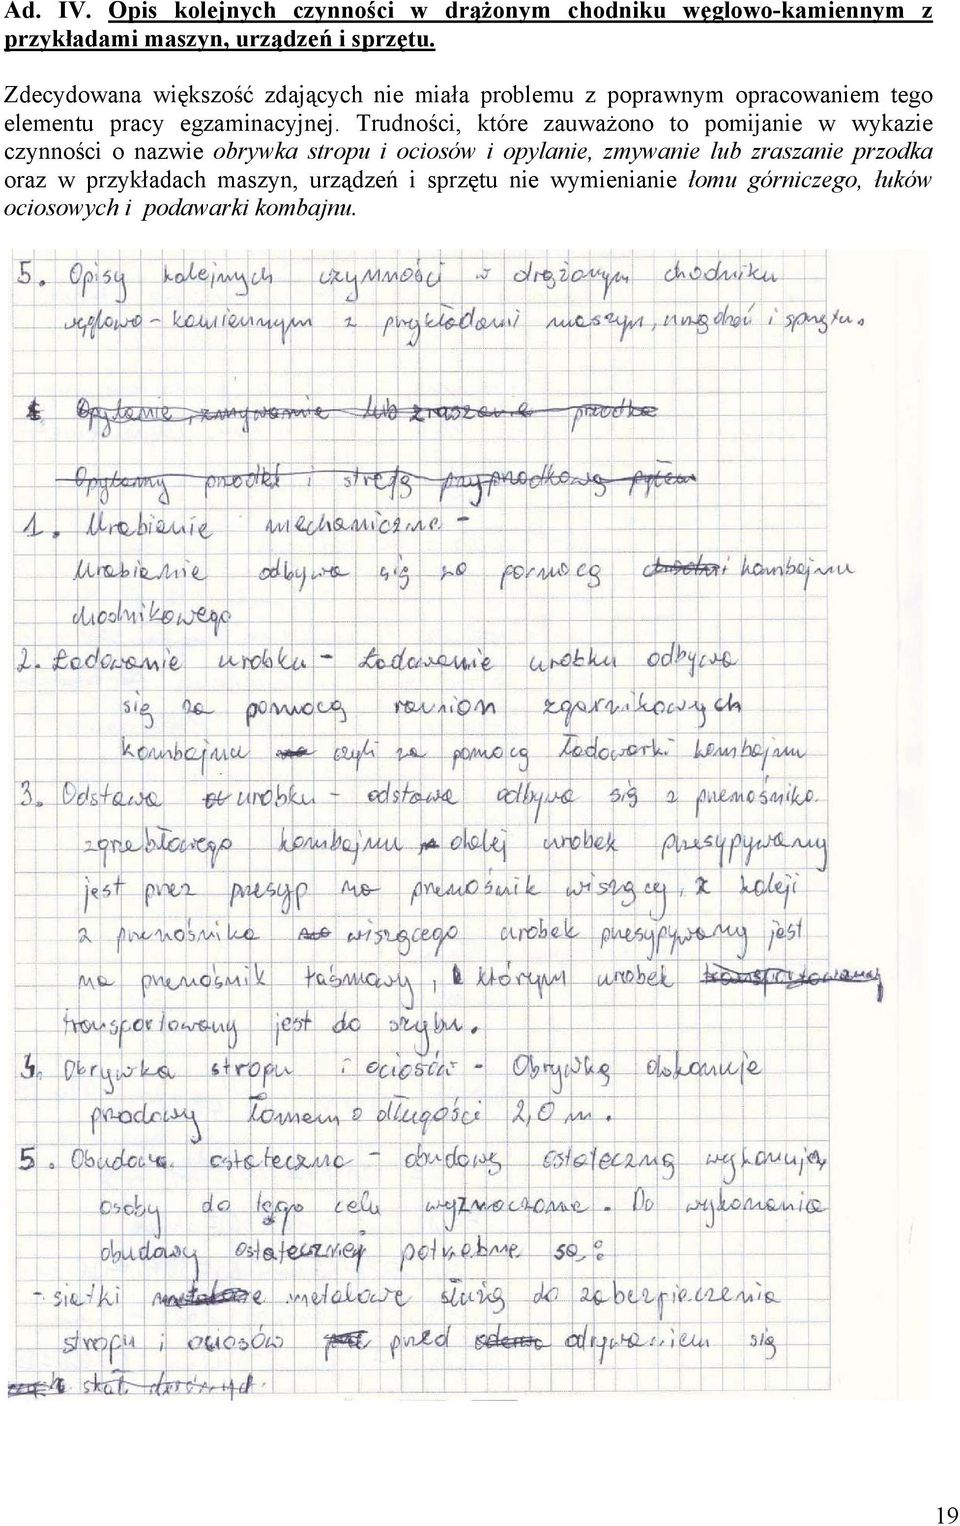 Ad. IV. Opis kolejnych czynności w drążonym chodniku węglowo-kamiennym z
przykładami maszyn, urządzeń i sprzętu.
Zdecydowana większość zdających nie miała problemu z poprawnym opracowaniem tego
elementu pracy egzaminacyjnej. Trudności, które zauważono to pomijanie w wykazie
czynności o nazwie obrywka stropu i ociosów i opylanie, zmywanie lub zraszanie przodka
oraz w przykładach maszyn, urządzeń i sprzętu nie wymienianie łomu górniczego, łuków
ociosowych i podawarki kombajnu.
5. Opisy kolejnych czynności w drążonym chodniku
węglowo-kamiennym z przykładami maszyn, urządzeń i sprzętu.
Opylanie, zmywanie lub zraszanie przodka
Opylamy przodki i strefę przyprzodkową pyłem
1. Urabianie mechaniczne -
Urabianie odbywa się za pomocą kombajnu
chodnikowego
2. Ładowanie urobku - Ładowanie urobku odbywa
się za pomocą ramion zgarnikowych
kombajnu czyli za pomocą ładowarki kombajnu
3. Odstawa urobku - odstawa odbywa się z przenośnika
zgrzebłowego kombajnu dalej urobek przesypywany
jest przez przesyp na przenośnik wiszący, z kolei
z przenośnika wiszącego urobek przesypywany jest
na przenośnik taśmowy, którym urobek transportowany
transportowany jest do szybu.
4. Obrywka stropu i ociosów - Obrywkę dokonuje
przodowy łomem o długości 2,0 m.
5. Obudowa ostateczna - obudowę ostateczną wykonują
osoby do tego celu wyznaczone. Do wykonania
obudowy ostatecznej potrzebne są:
- siatki metalowe metalowe służą do zabezpieczenia
stropu i ociosów przed odrywaniem się
skał
19